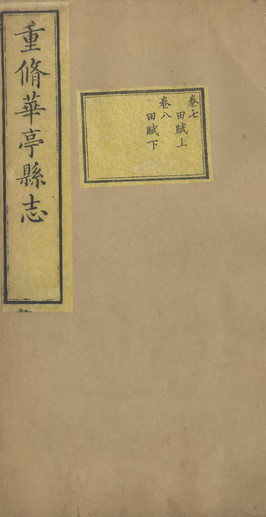 重脩華亭縣志
卷七
田賦上
卷八
田賦下